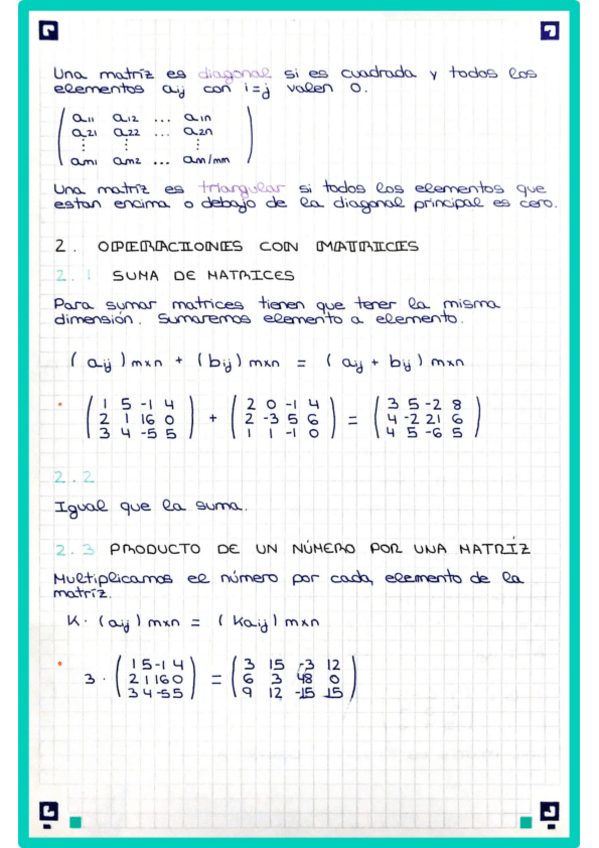 Una matríz es diagonal si es cuadrada y todos los
elementos aij con i=j valen 0.
a11 a12 ... a1n
a21 a22 ... a2n
⋮ ⋮ ⋮
am1 am2 ... an/mn
Una matríz es triangular si todos los elementos que
estan encima o debajo de la diagonal principal es cero.
2. OPERACIONES CON MATRICES
2.1 SUMA DE MATRICES
Para sumar matrices tienen que tener la misma
dimensión. Sumaremos elemento a elemento.
(aij)mxn + (bij)mxn = (aij + bij)mxn
1 5 -1 4   2 0 -1 4   3 5 -2 8
2 1 16 0 + 2 -3 5 6 = 4 -2 21 6
3 4 -5 5   1 1 -1 0   4 5 -6 5
2.2
Igual que la suma.
2.3 PRODUCTO DE UN NÚMERO POR UNA MATRÍZ
Multiplicamos el número por cada, elemento de la
matríz.
K· (aij)mxn = (Kaij)mxn
1 5 -1 4   3 15 -3 12
3 · 2 1 16 0 = 6 3 48 0
3 4 -5 5   9 12 -15 15